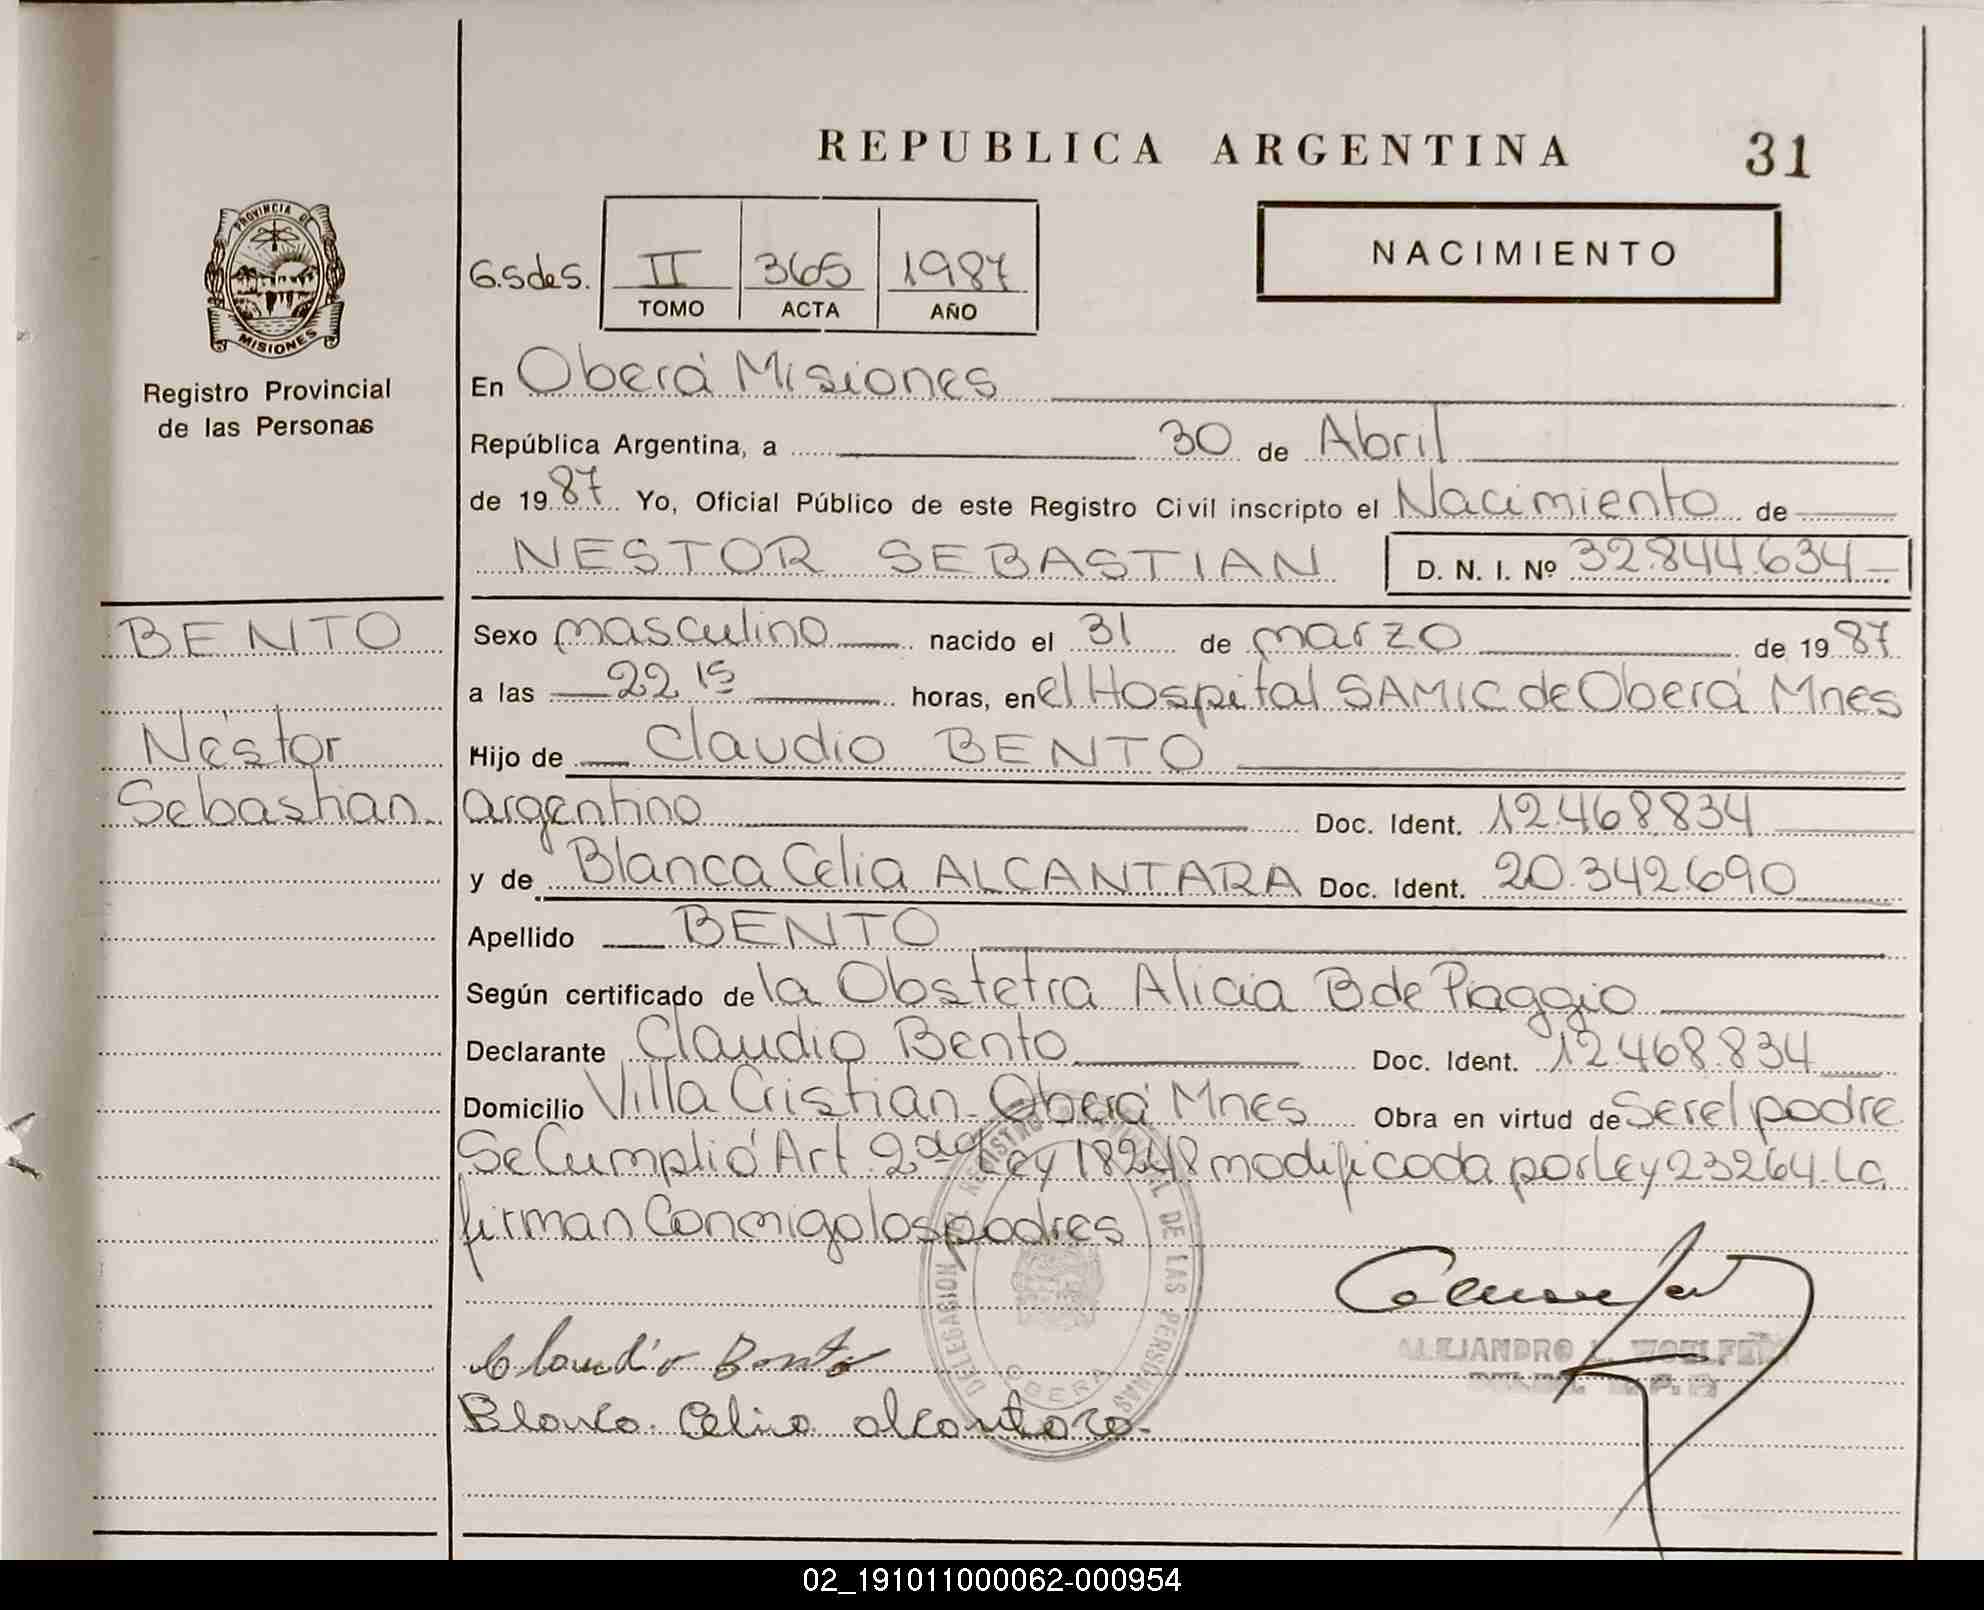 REPUBLICA ARGENTINA 31
PROVINCIA DE
MISIONES
Registro Provincial
de las Personas
G.S de S. II 365 1987
TOMO ACTA AÑO
NACIMIENTO
En Oberá Misiones
República Argentina, a 30 de Abril
de 1987 Yo, Oficial Público de este Registro Civil inscripto el Nacimiento de
NESTOR SEBASTIAN D. N. I. Nº 32.844.634
BENTO
Néstor
Sebastian
Sexo masculino nacido el 31 de marzo de 1987
a las 22 15 horas, en el Hospital SAMIC de Oberá Mnes
Hijo de Claudio BENTO
argentino Doc. Ident. 12.468.834
y de Blanca Celia ALCANTARA Doc. Ident. 20.342.690
Apellido BENTO
Según certificado de la Obstetra Alicia B de Piaggio
Declarante Claudio Bento Doc. Ident. 12.468.834
Domicilio Villa Cristian Oberá Mnes Obra en virtud de Ser el padre
Se Cumplió Art 2 de Ley 18248 modificada por Ley 23264. La
firman Conmigo los padres
DELEGACION REGISTRO DE LAS PERSONAS
OBERA
Claudio Bento
Blanca Celia alcantara.
ALEJANDRO L.
02_191011000062-000954